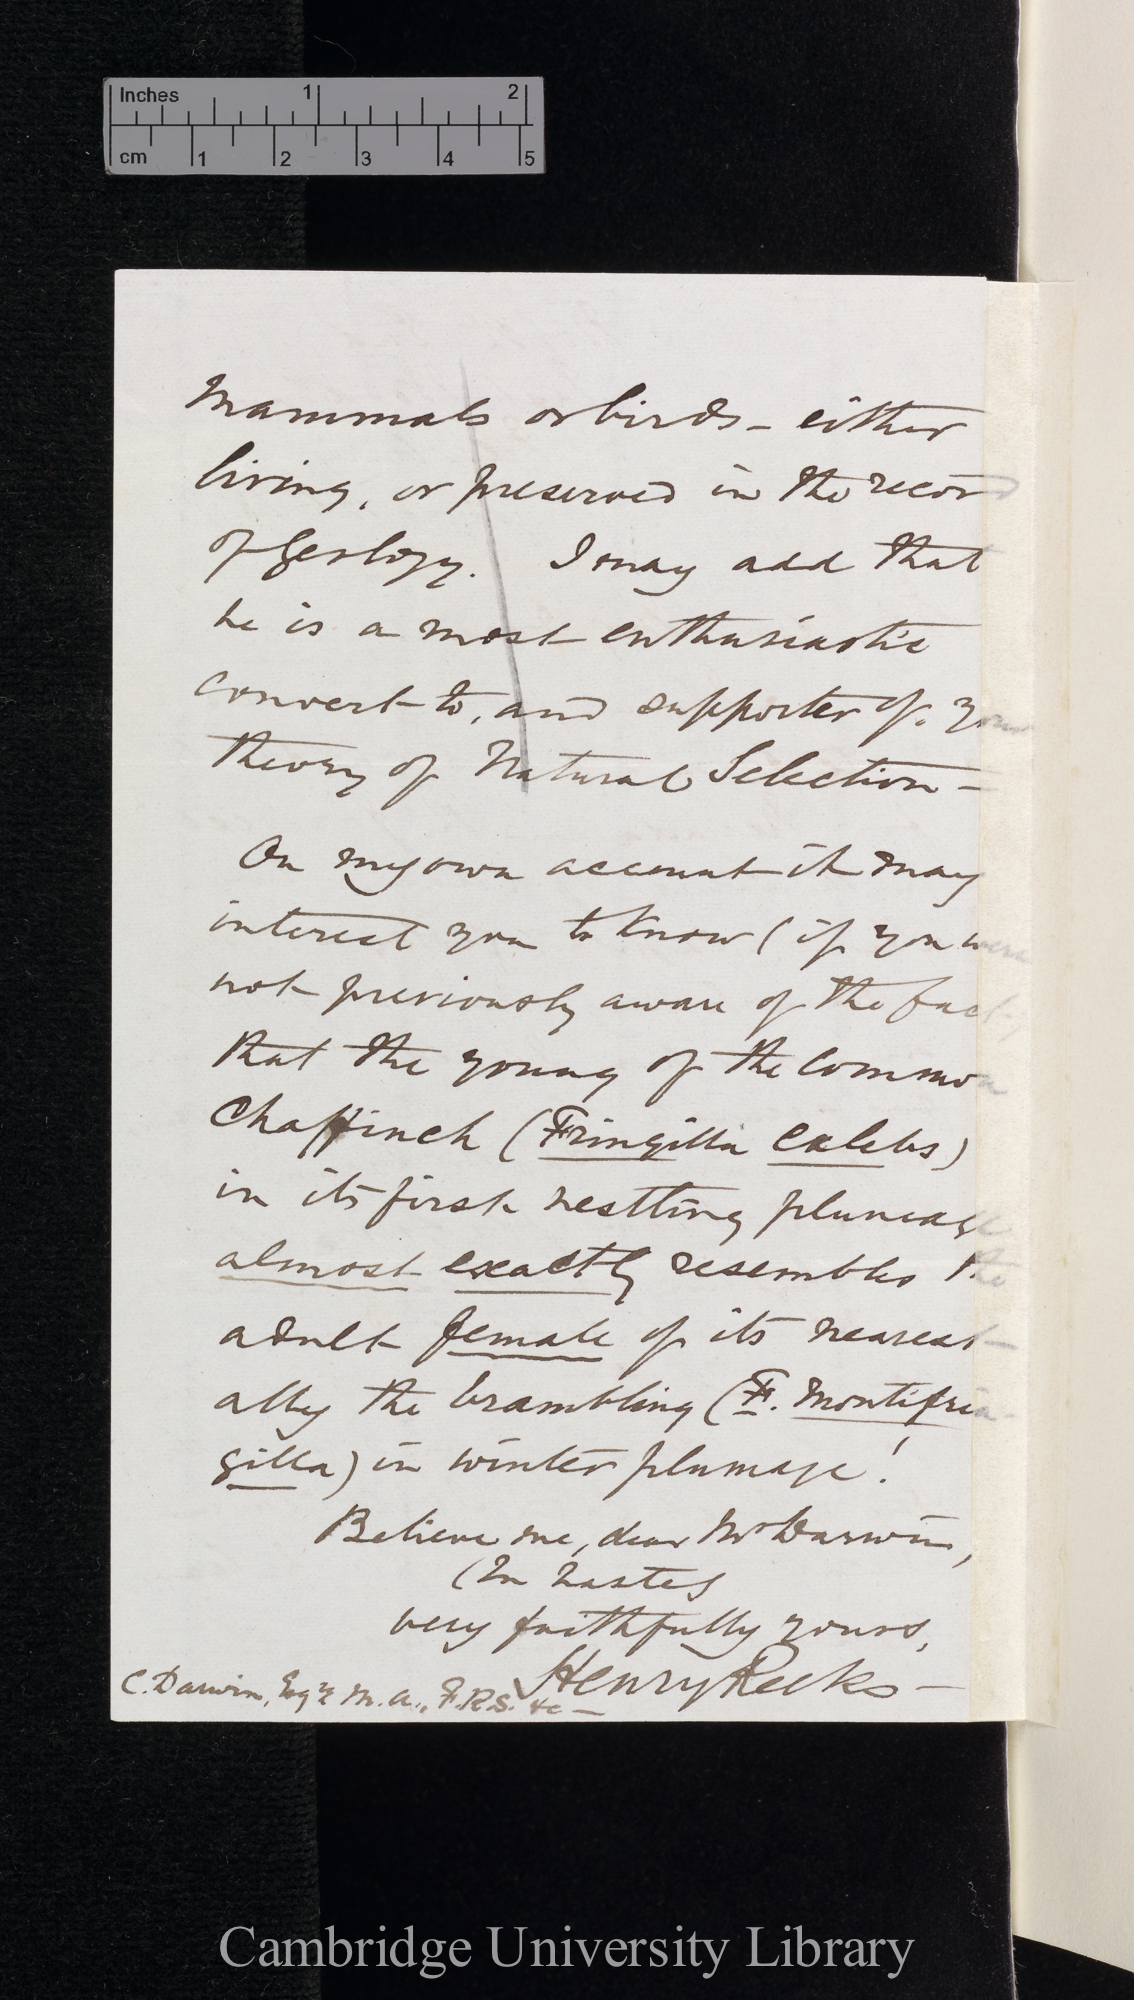 Inches 1 2
cm 1 2 3 4 5
Mammals or birds – either
living, or preserved in the record
of Geology. I may add that
he is a most enthusiastic
convert to, and supporter of, your
theory of Natural Selection –
On my own account it may
interest you to know (if you were
not previously aware of the fact,)
that the young of the common
Chaffinch (Fringilla Cælebs)
in its first nestling plumage
almost exactly resembles the
adult female of its nearest
ally the brambling (F. Montifrin-
gilla) in winter plumage!
Believe me, dear Mr Darwin,
(In haste)
very faithfully yours,
Henry Reeks –
C. Darwin, Esqre M.A., F.R.S. &c –
Cambridge University Library